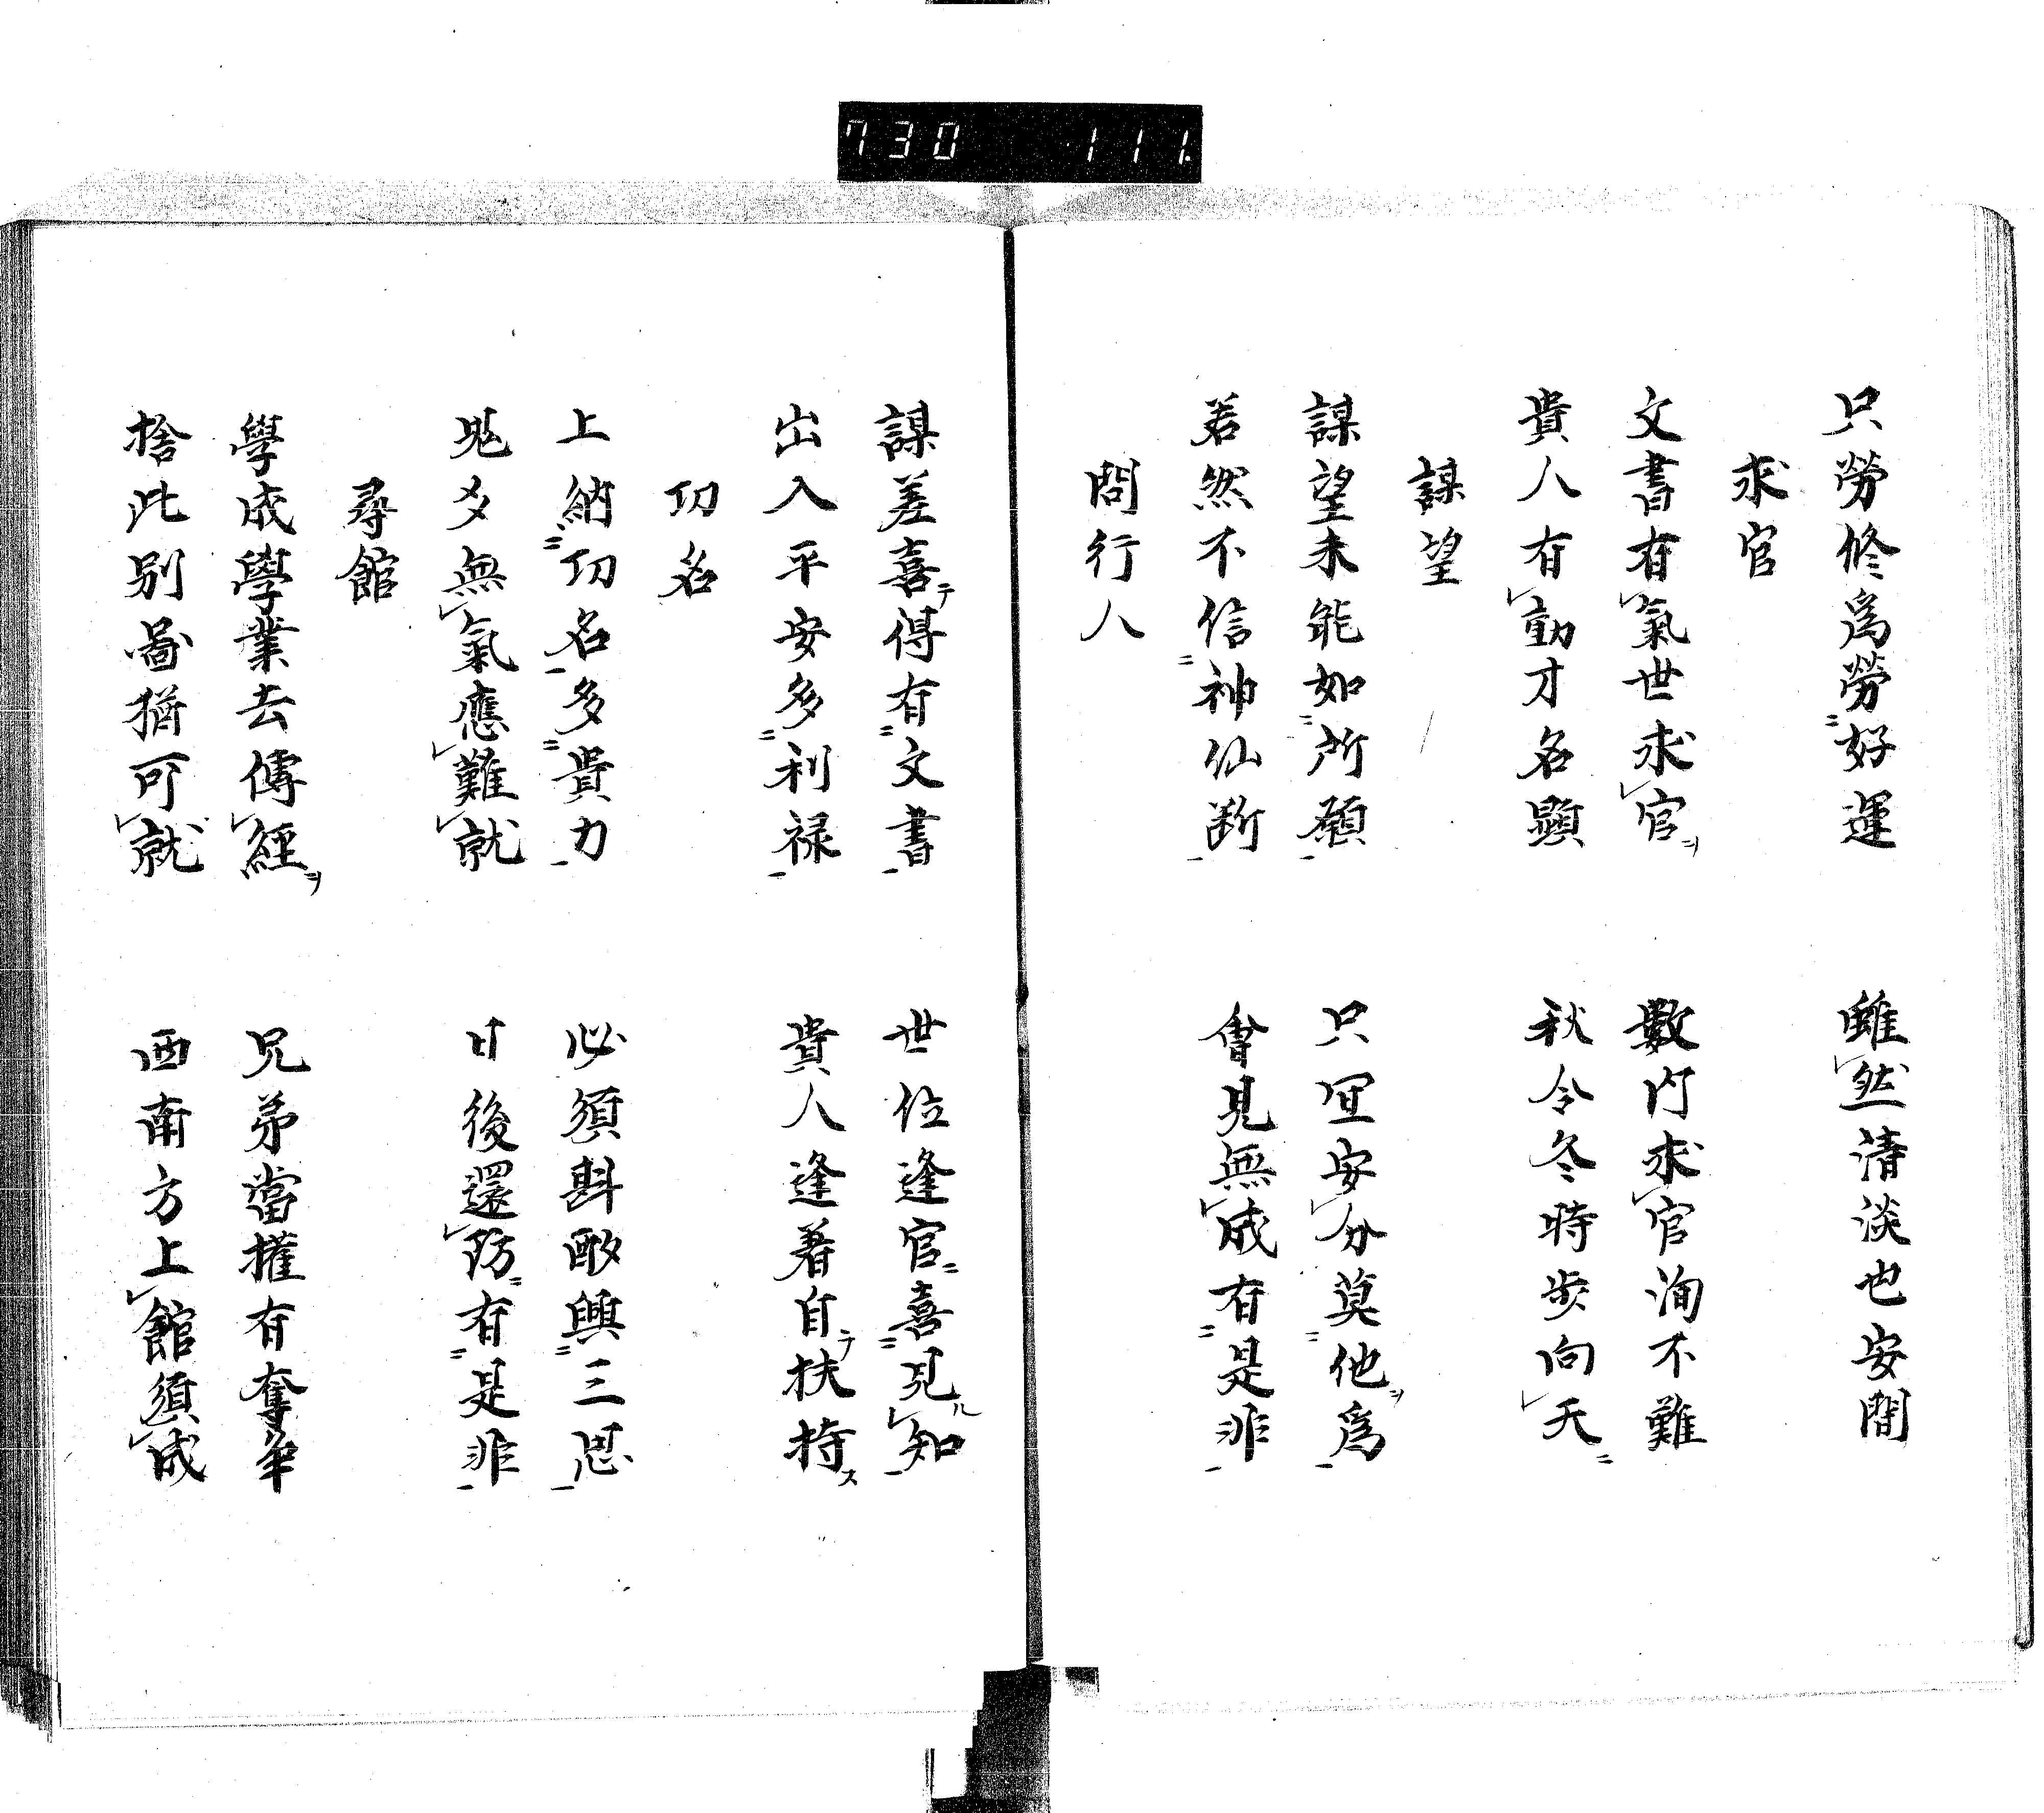 730 111
只勞修為勞好運 雖然清淡也安閒
求官
文書有氣世求官 數內求官洵不難
貴人有動才名顯 秋令冬時步向天
謀望
謀望未能如所願 只宜安分莫他為
若然不信神仙断 會見無成有是非
問行人
謀差喜得有文書 世位逢官喜見知
出入平安多利禄 貴人逢着自扶持
功名
上納功名多貴力 必須斟酌與三思
鬼多無氣應難就 日後還防有是非
尋館
學成學業去傳經 兄弟當權有奪争
捨此別啚猶可就 西南方上館須成